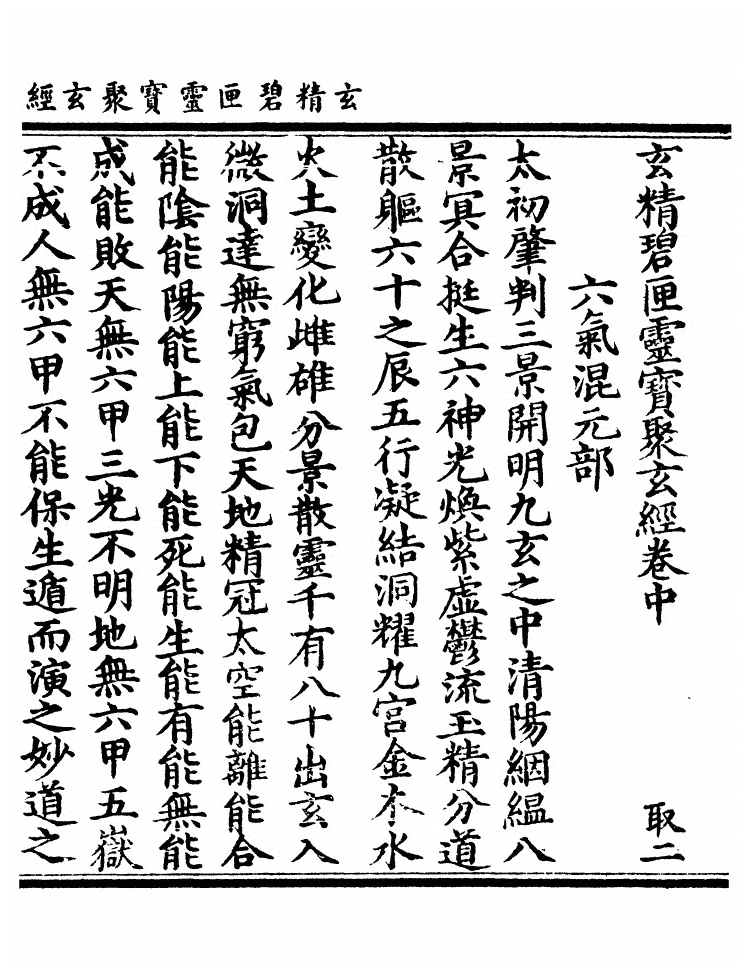 玄精碧匣靈寶聚玄經
玄精碧匣靈寶聚玄經卷中 取二
六氣混元部
太初肇判三景開明九玄之中清陽絪縕八
景冥合挺生六神光煥紫虛鬱流玉精分道
散軀六十之辰五行凝結洞耀九宮金木水
火土變化雌雄分景散靈千有八十出玄入
微洞達無窮氣包天地精冠太空能離能合
能陰能陽能上能下能死能生能有能無能
成能敗天無六甲三光不明地無六甲五嶽
不成人無六甲不能保生遁而演之妙道之